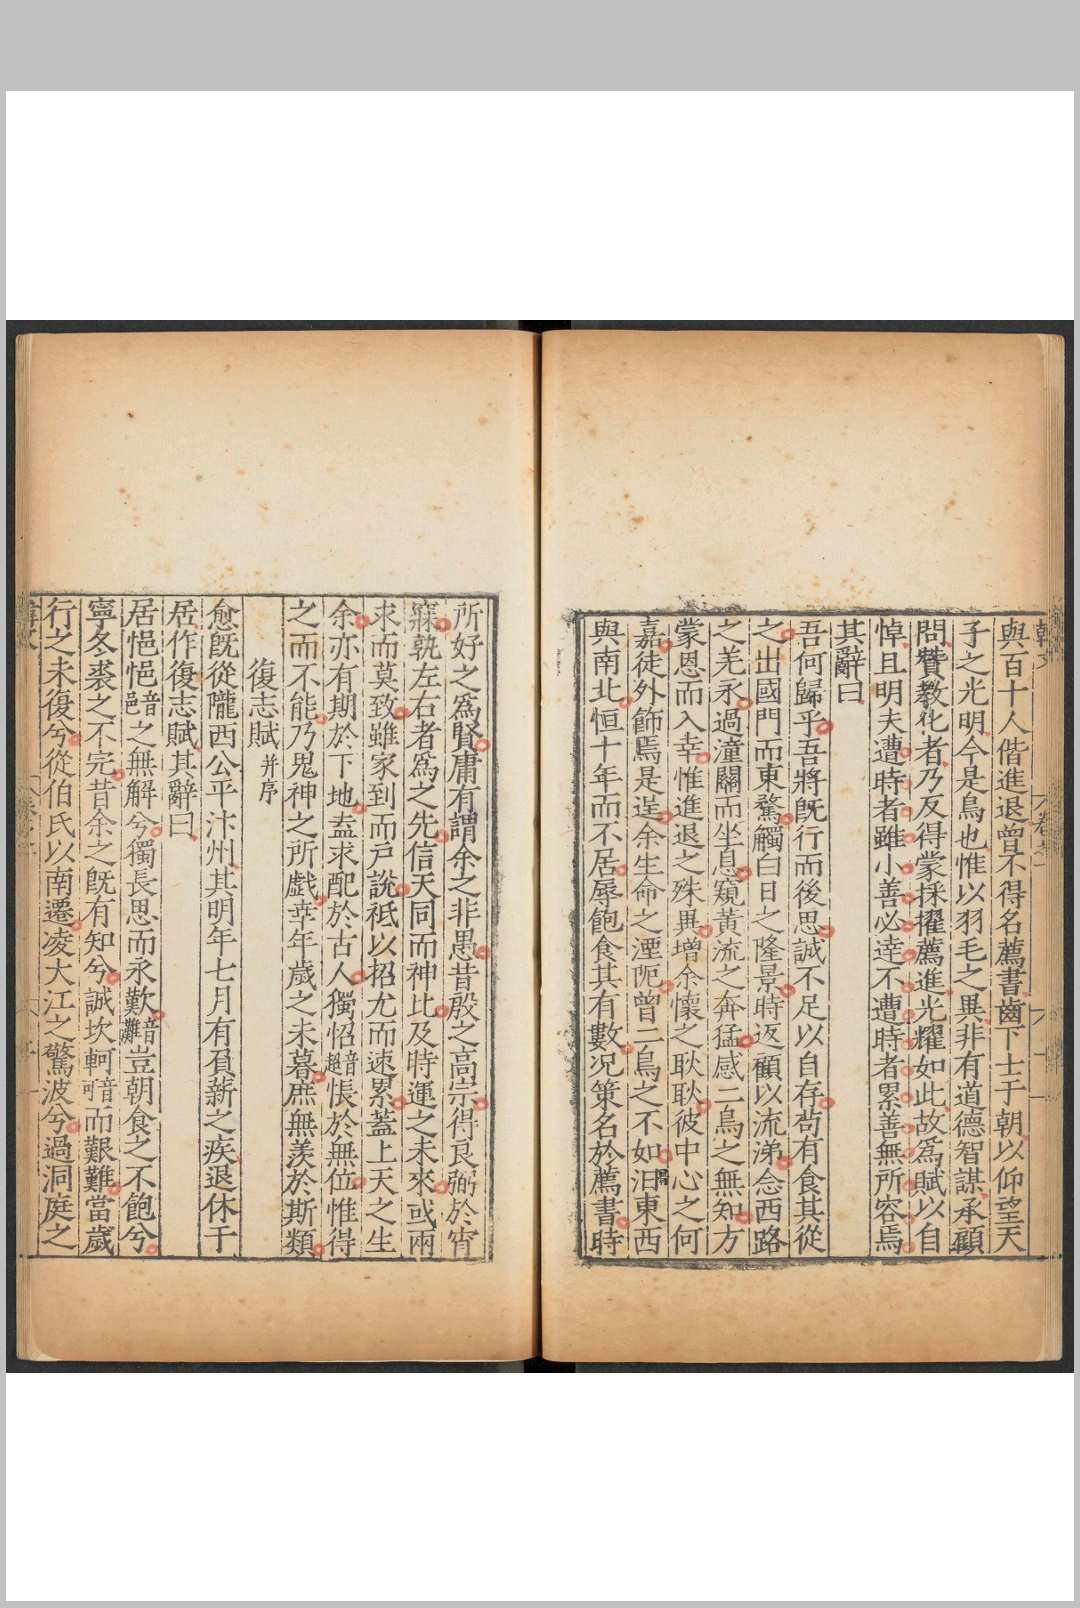 韓文
卷之一
與百十人偕進退曾不得名薦書齒下士于朝以仰望天
子之光明今是鳥也惟以羽毛之異非有道德智謀承顧
問賛敎化者乃反得蒙採擢薦進光耀如此故爲賦以自
悼且明夫遭時者雖小善必達不遭時者累善無所容焉
其辭曰
吾何歸乎吾將旣行而後思誠不足以自存苟有食其從
之出國門而東騖觸白日之隆景時返顧以流涕念西路
之羌永過潼關而坐息窺黃流之奔猛感二鳥之無知方
蒙恩而入幸惟進退之殊異增余懷之耿耿彼中心之何
嘉徒外飾焉是逞余生命之湮阨曾二鳥之不如汩東西
與南北恒十年而不居辱飽食其有數況策名於薦書時
所好之爲賢庸有謂余之非愚昔殷之高宗得良弼於宵
寐孰左右者爲之先信天同而神比及時運之未來或兩
求而莫致雖家到而戶說祗以招尤而速累蓋上天之生
余亦有期於下地盍求配於古人獨怊音超悵於無位惟得
之而不能乃鬼神之所戲幸年歲之未暮庶無羨於斯類
復志賦并序
愈旣從隴西公平汴州其明年七月有負薪之疾退休于
居作復志賦其辭曰
居悒悒音邑之無解兮獨長思而永歎音難豈朝食之不飽兮
寧冬裘之不完昔余之旣有知兮誠坎軻音可而艱難當歲
行之未復兮從伯氏以南遷凌大江之驚波兮過洞庭之